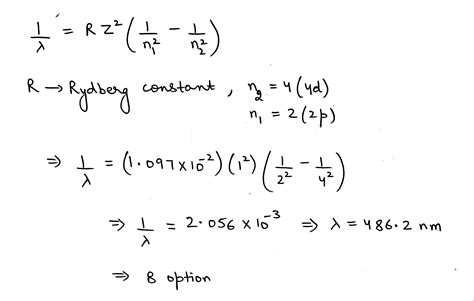 1/λ = R Z² (1/n₁² - 1/n₂²)
R → Rydberg constant, n₂ = 4 (4d)
n₁ = 2 (2p)
⇒ 1/λ = (1.097 × 10⁻²) (1²) (1/2² - 1/4²)
⇒ 1/λ = 2.056 × 10⁻³ ⇒ λ = 486.2 nm
⇒ B option